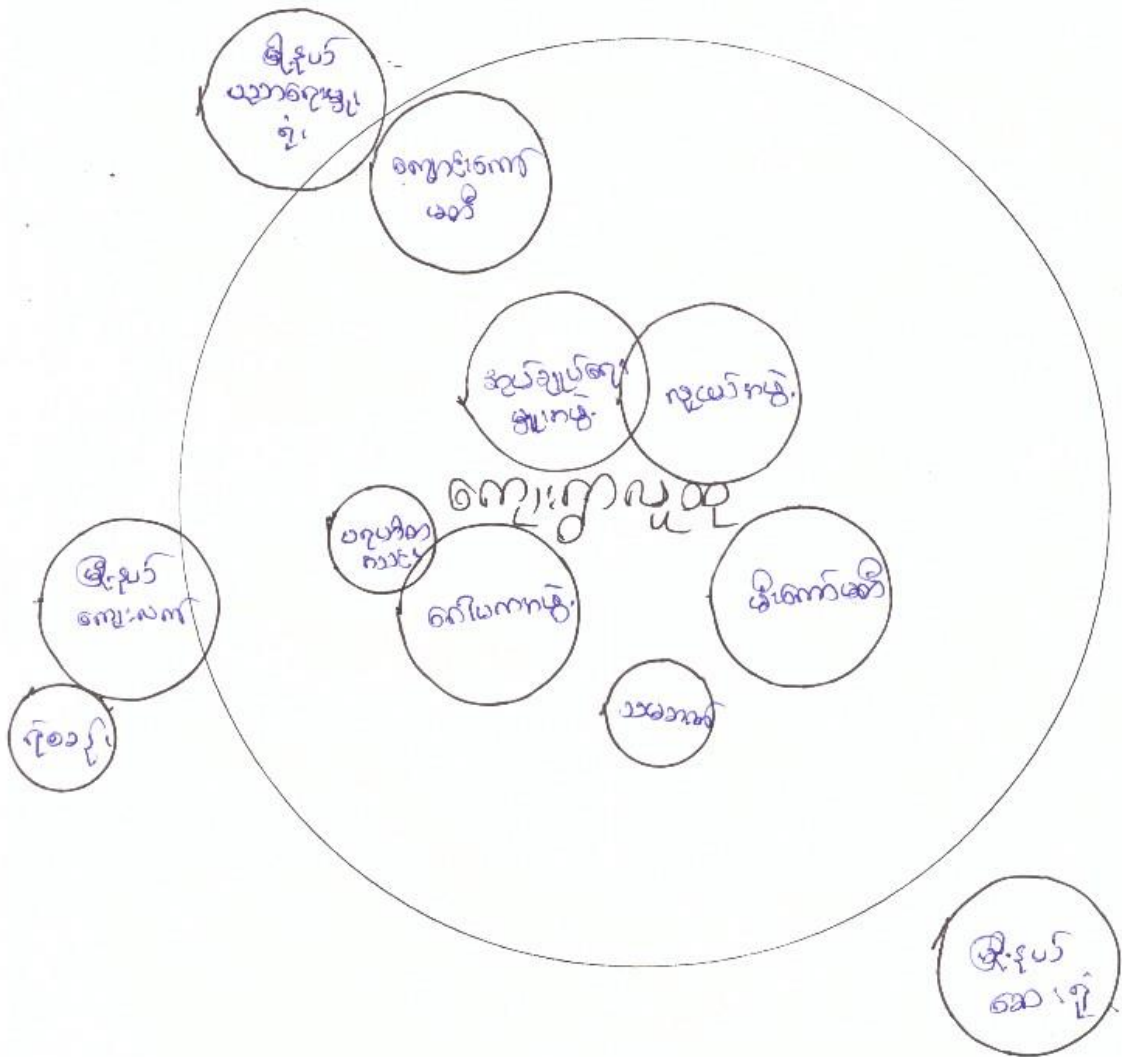 မြို့နယ်
ပညာရေးမှူး
ရုံး
ကျောင်းကော်
မတီ
အုပ်ချုပ်ရေး
မှူးအဖွဲ့
လူငယ်အဖွဲ့
ကျေးရွာလူထု
ပရဟိတ
အသင်း
ဂေါပကအဖွဲ့
မီးကော်မတီ
မြို့နယ်
ကျေးလက်
ရဲစခန်း
မြို့နယ်
ဆေးရုံ